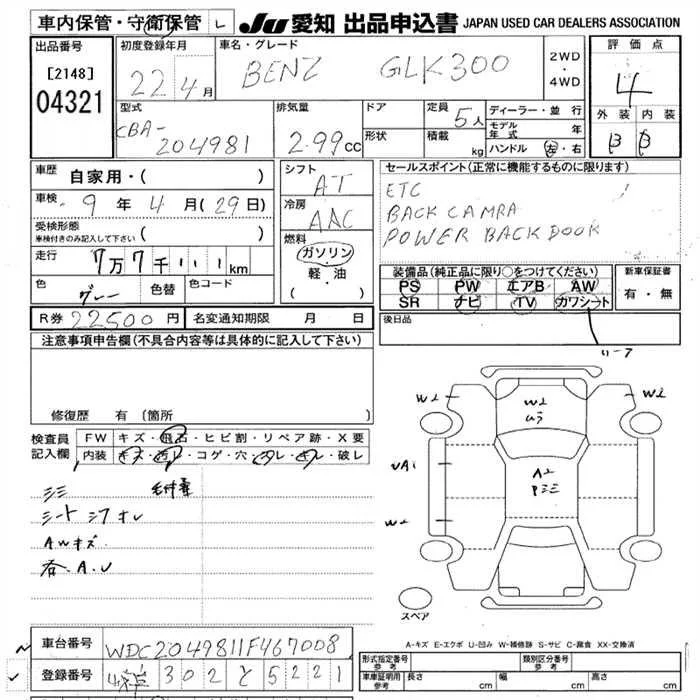 車内保管・守衛保管 L
JU 愛知 出品申込書 JAPAN USED CAR DEALERS ASSOCIATION
出品番号
[2148]
04321
初度登録年月
22年4月
車名・グレード
BENZ GLK300
2WD
・
4WD
評価点
4
外装 内装
B B
型式
CBA-
204981
排気量
2.99cc
ドア
形状
定員
5人
積載
kg
ディーラー・並行
モデル
年式
年
ハンドル 左・右
車歴
自家用・( )
車検
9年4月(29日)
受検形態
車検付きのみ記入して下さい ( )
走行
7万7千111km
色
グレー
色替
色コード
シフト
AT
冷房
AAC
燃料
ガソリン
・
軽・油
( )
セールスポイント(正常に機能するものに限ります)
ETC
BACK CAMRA
POWER BACK DOOR
装備品(純正品に限り○をつけてください)
PS PW エアB AW
SR ナビ TV カワシート
新車保証書
有・無
R券 22500円
名変通知期限 月 日
後日品
注意事項申告欄(不具合内容等は具体的に記入して下さい)
修復歴 有(箇所
検査員
記入欄
FW キズ・飛石・ヒビ割・リペア跡・X要
内装 キズ・汚レ・コゲ・穴・スレ・キレ・破レ
シミ
シート シワオレ
AWキズ
各.A.U
W2
W2
ムラ
W2
UA1
A2
Pミミ
W2
スペア
A-キズ E-エクボ U-凹み W-補修跡 S-サビ C-腐食 XX-交換済
車台番号
WDC2049811F467008
登録番号
302 と 5221
形式指定番号
参考
類別区分番号
参考
車庫証明用
参考
長さ
cm
幅
cm
高さ
cm